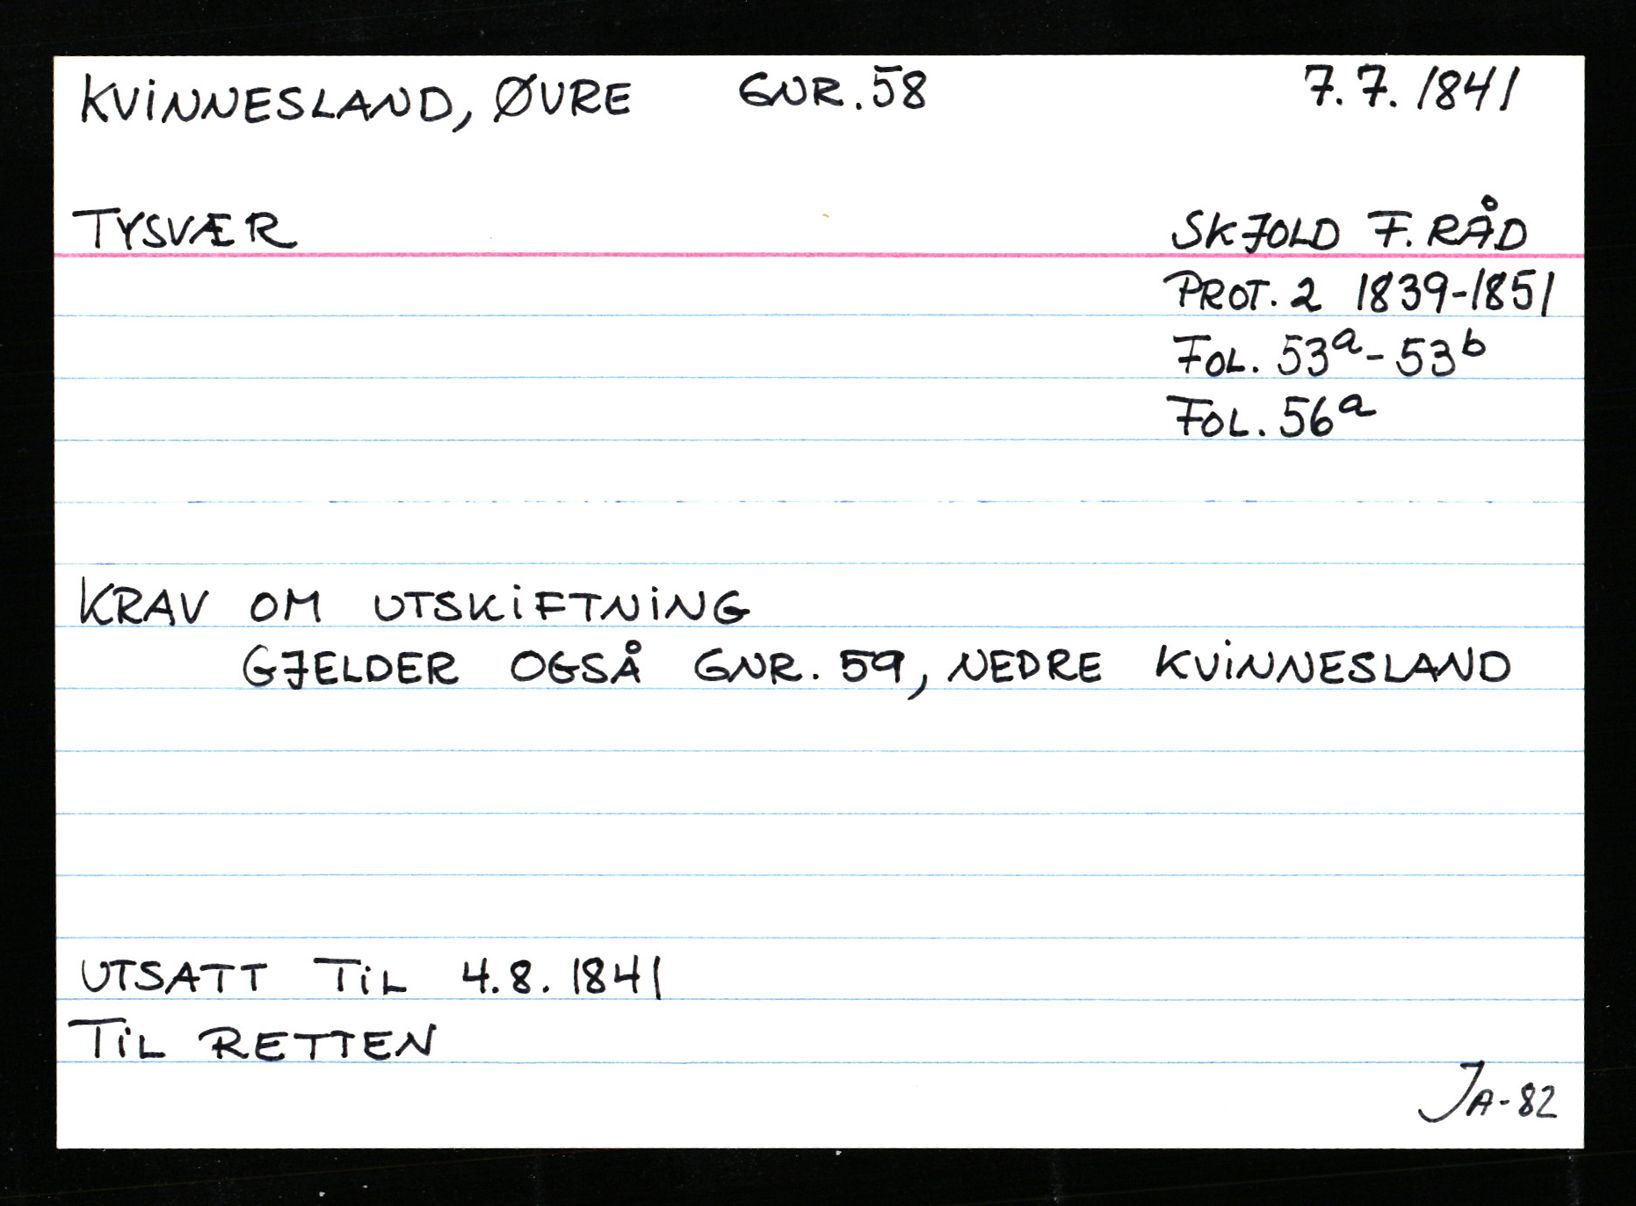 KVINNESLAND, ØVRE GNR. 58 7.7.1841
TYSVÆR SKJOLD F. RÅD
PROT. 2 1839-1851
FOL. 53ᵃ - 53ᵇ
FOL. 56ᵃ
KRAV OM UTSKIFTNING
GJELDER OGSÅ GNR. 59, NEDRE KVINNESLAND
UTSATT TIL 4.8.1841
TIL RETTEN
JA-82